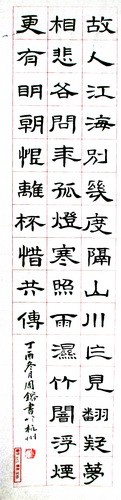 故人江海別幾度隔山川乍見翻疑夢
相悲各問年孤燈寒照雨濕竹闇浮煙
更有明朝恨離杯惜共傳
丁酉冬月周書於杭州